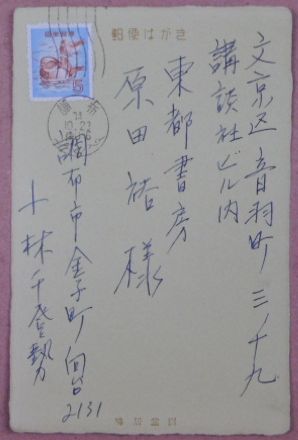 郵便はがき
文京区音羽町三ノ十九
講談社ビル内
東都書房
原田裕様
調布市金子町向台
2131
小林千登勢